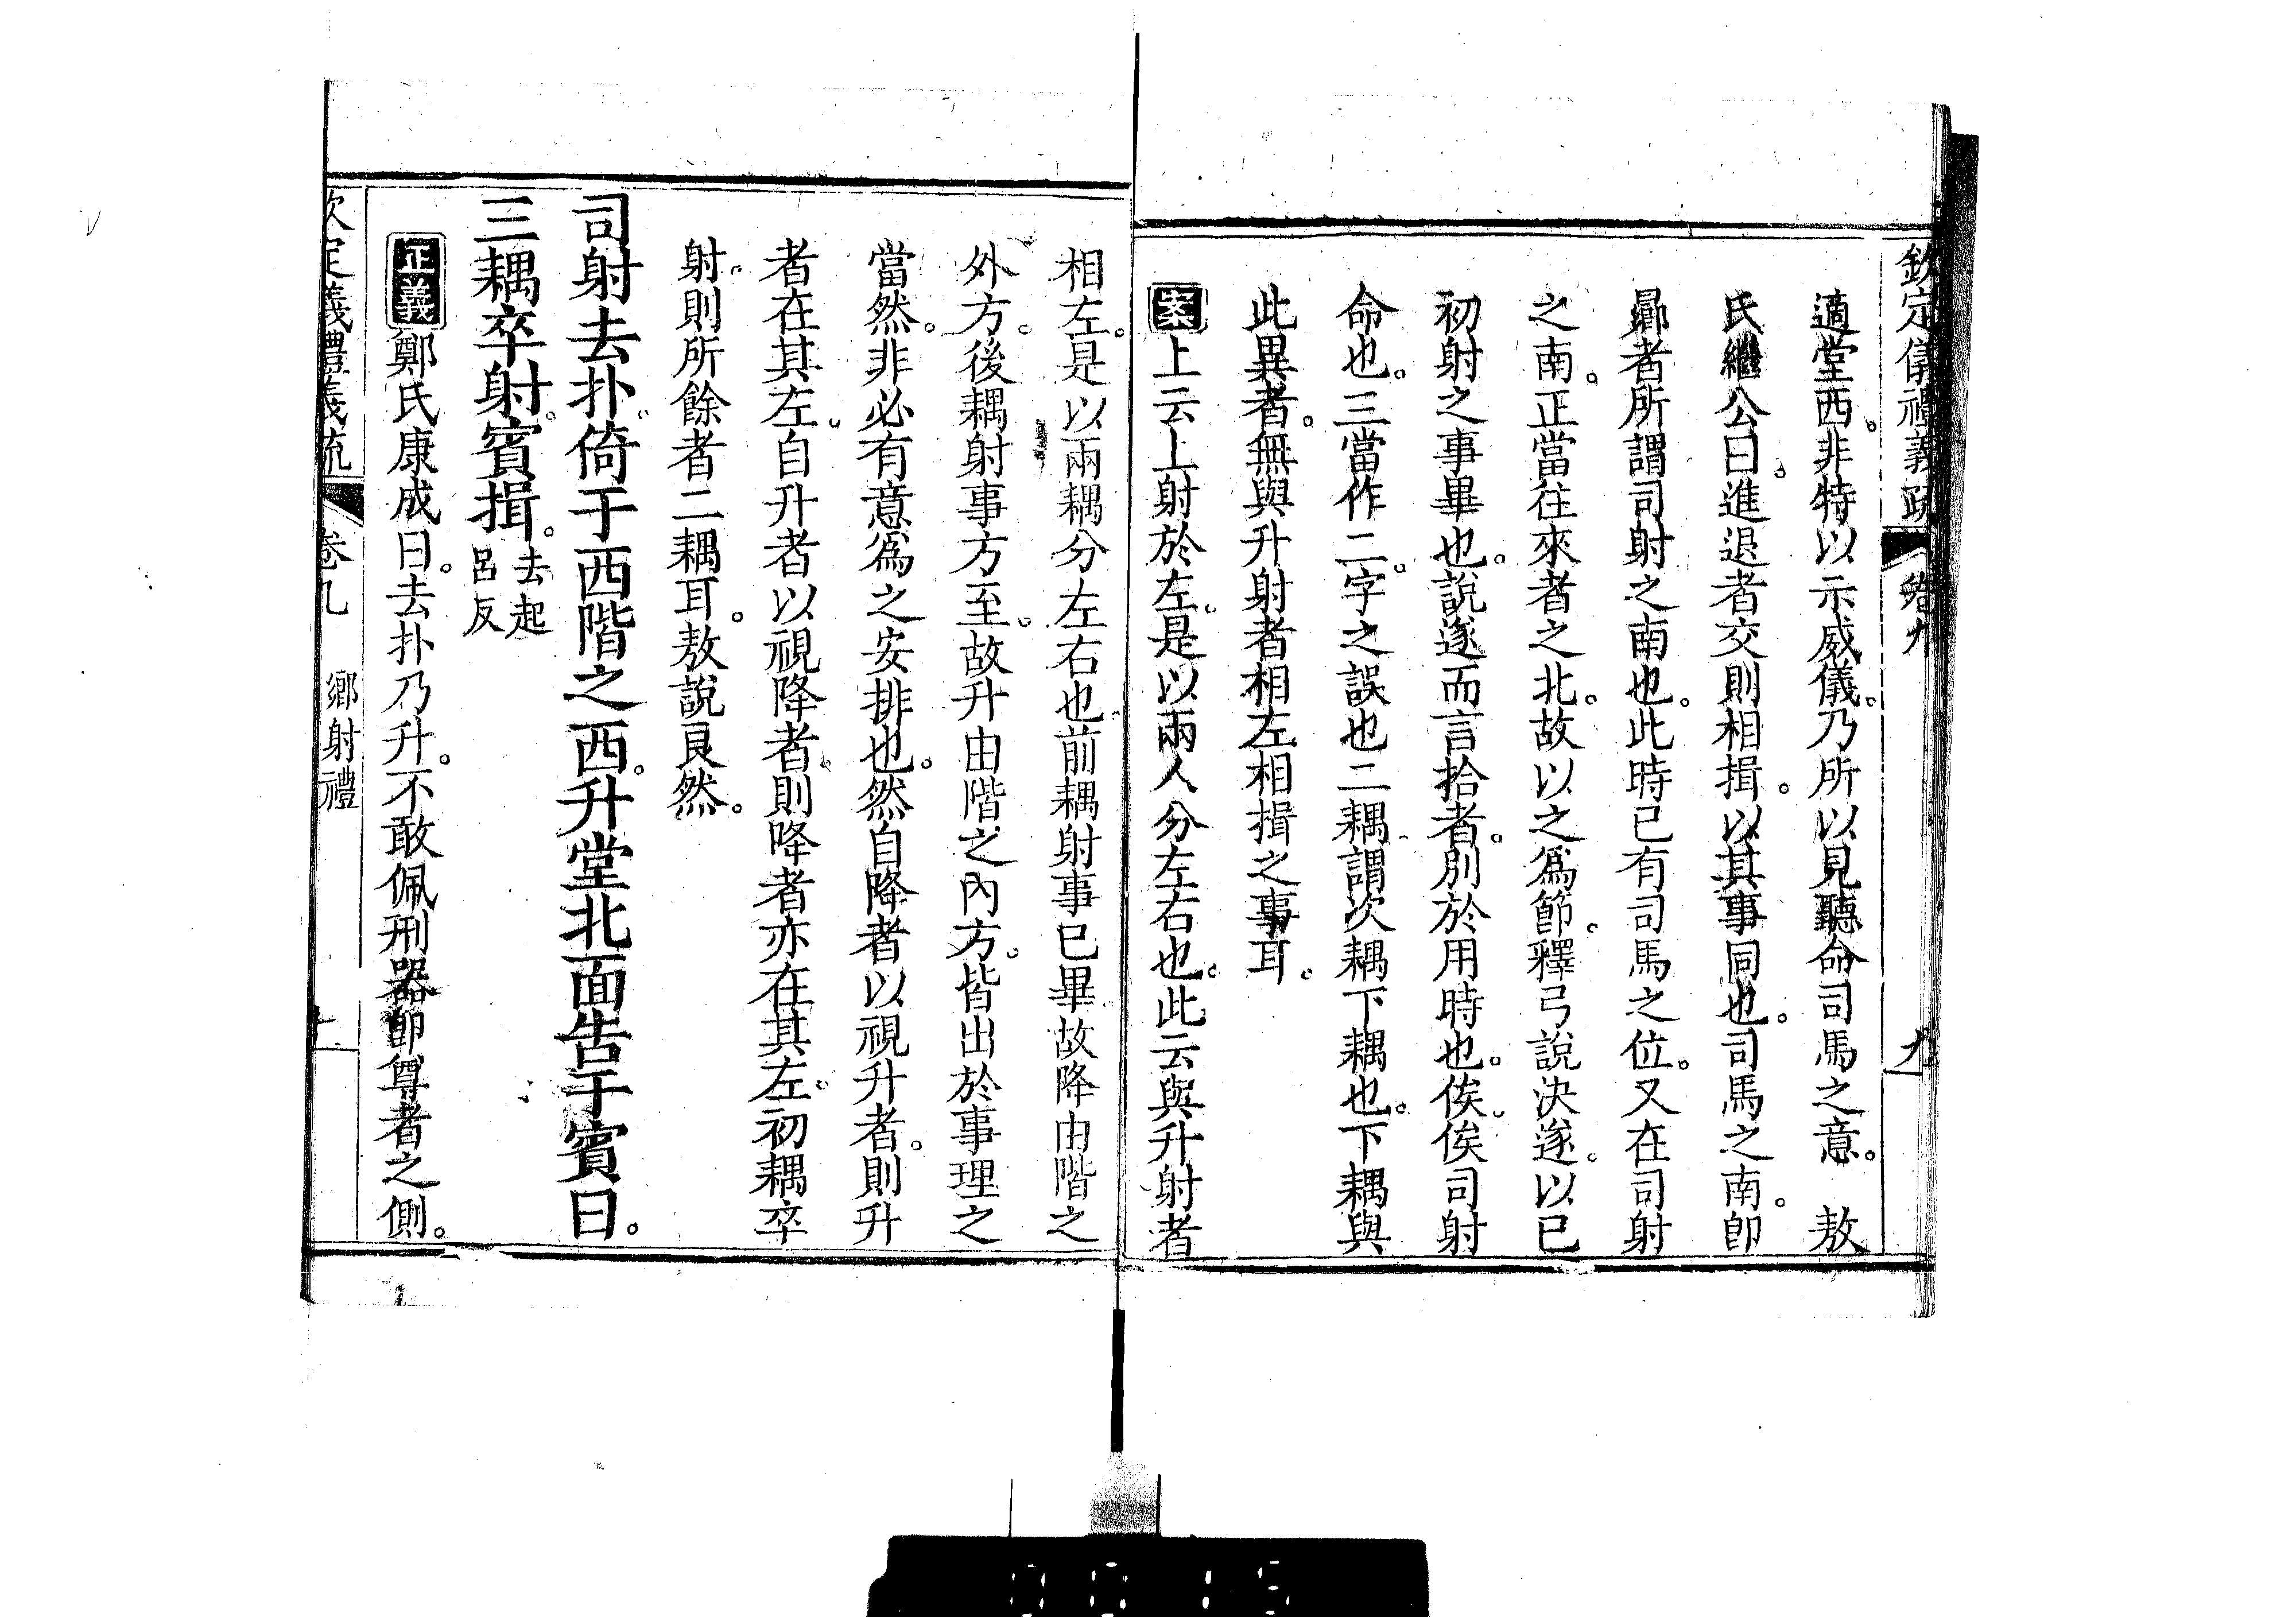 欽定儀禮義疏 卷九 九
適堂西。非特以示威儀。乃所以見聽命司馬之意。 敖
氏繼公曰。進退者交則相揖。以其事同也。司馬之南。卽
曏者所謂司射之南也。此時已有司馬之位。又在司射
之南。正當往來者之北。故以之爲節。釋弓說決遂。以已
初射之事畢也。說遂而言拾者。別於用時也。俟。俟司射
命也。三當作二。字之誤也二耦。謂次耦下耦也。下耦與
此異者。無與升射者相左相揖之事耳。
案上云上射於左。是以兩人分左右也。此云與升射者
相左。是以兩耦分左右也。前耦射事已畢。故降由階之
外方。後耦射事方至。故升由階之內方。皆出於事理之
當然。非必有意爲之安排也。然自降者以視升者。則升
者在其左。自升者以視降者。則降者亦在其左。初耦卒
射。則所餘者二耦耳。敖說良然。
司射去扑。倚于西階之西。升堂北面告于賓曰。
三耦卒射。賓揖。去起呂反
正義鄭氏康成曰。去扑乃升。不敢佩刑器卽尊者之側。
欽定儀禮義疏 卷九 鄉射禮